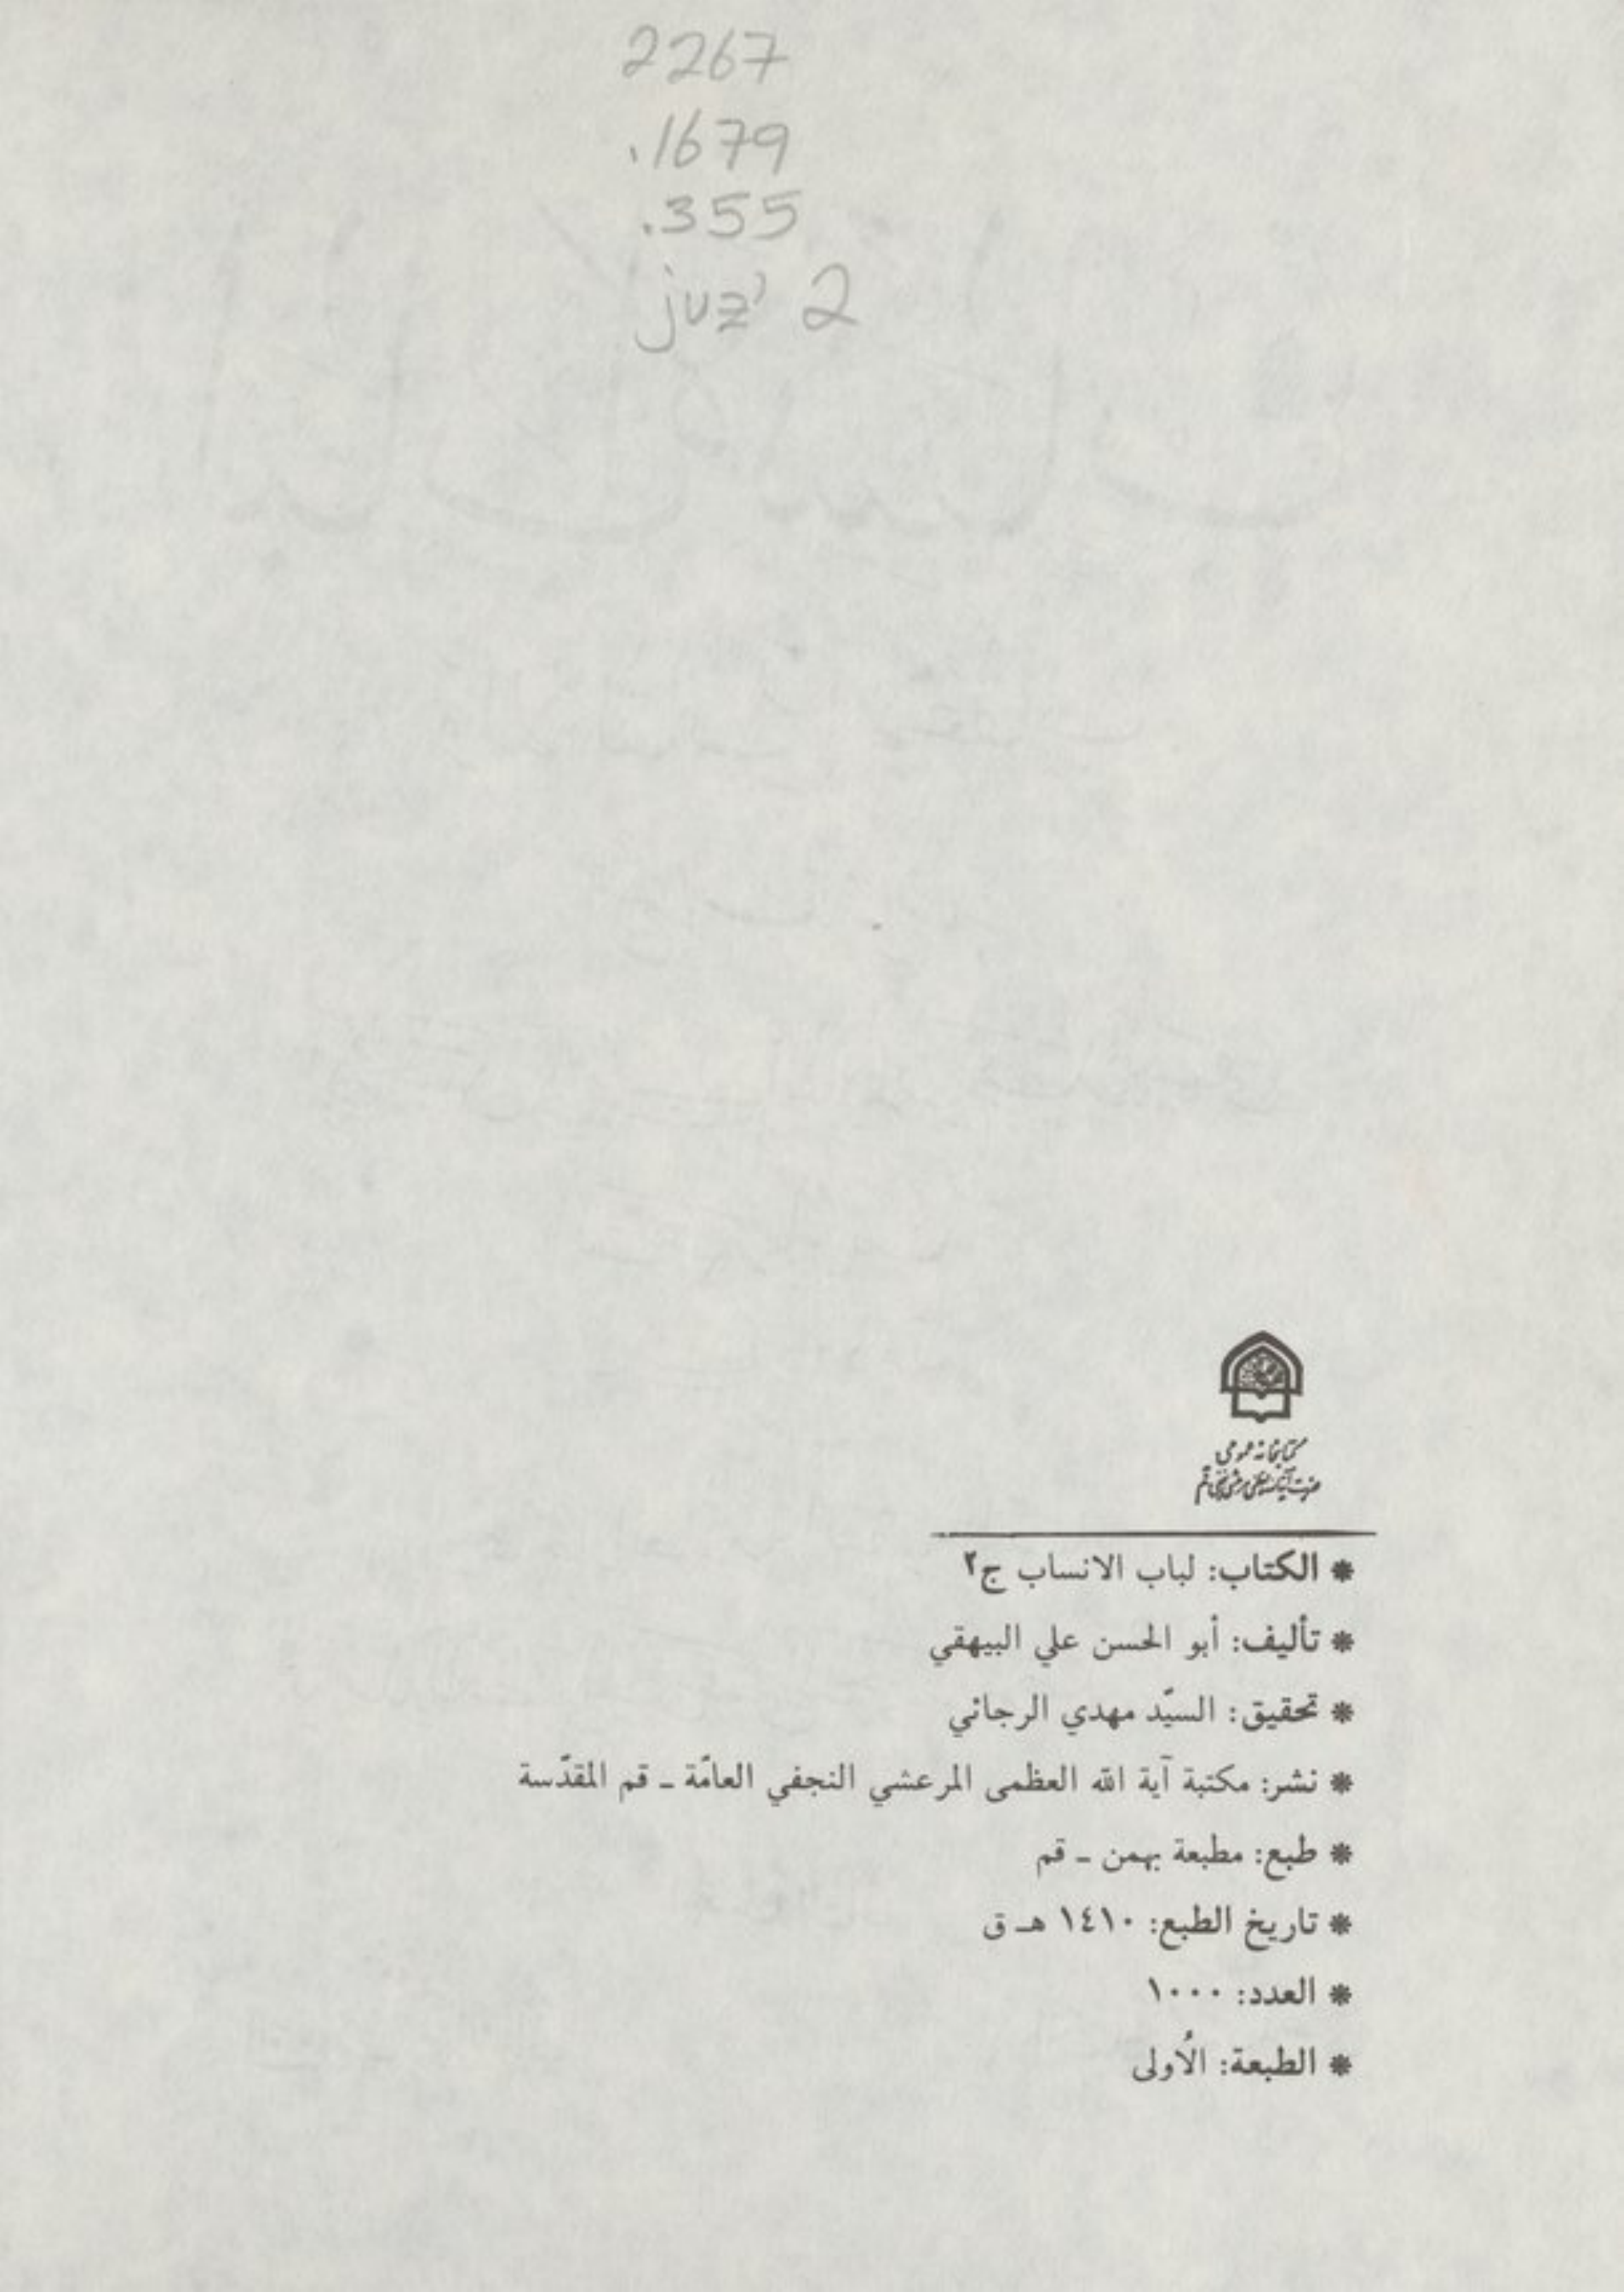 2267
.1679
.355
juz' 2
كتابخانه عمومى
حضرت آية الله العظمى مرعشى نجفى قم
* الكتاب: لباب الانساب ج٢
* تأليف: أبو الحسن علي البيهقي
* تحقيق: السيّد مهدي الرجائي
* نشر: مكتبة آية الله العظمى المرعشي النجفي العامّة ـ قم المقدّسة
* طبع: مطبعة بهمن ـ قم
* تاريخ الطبع: ١٤١٠ هـ ق
* العدد: ١٠٠٠
* الطبعة: الأُولى